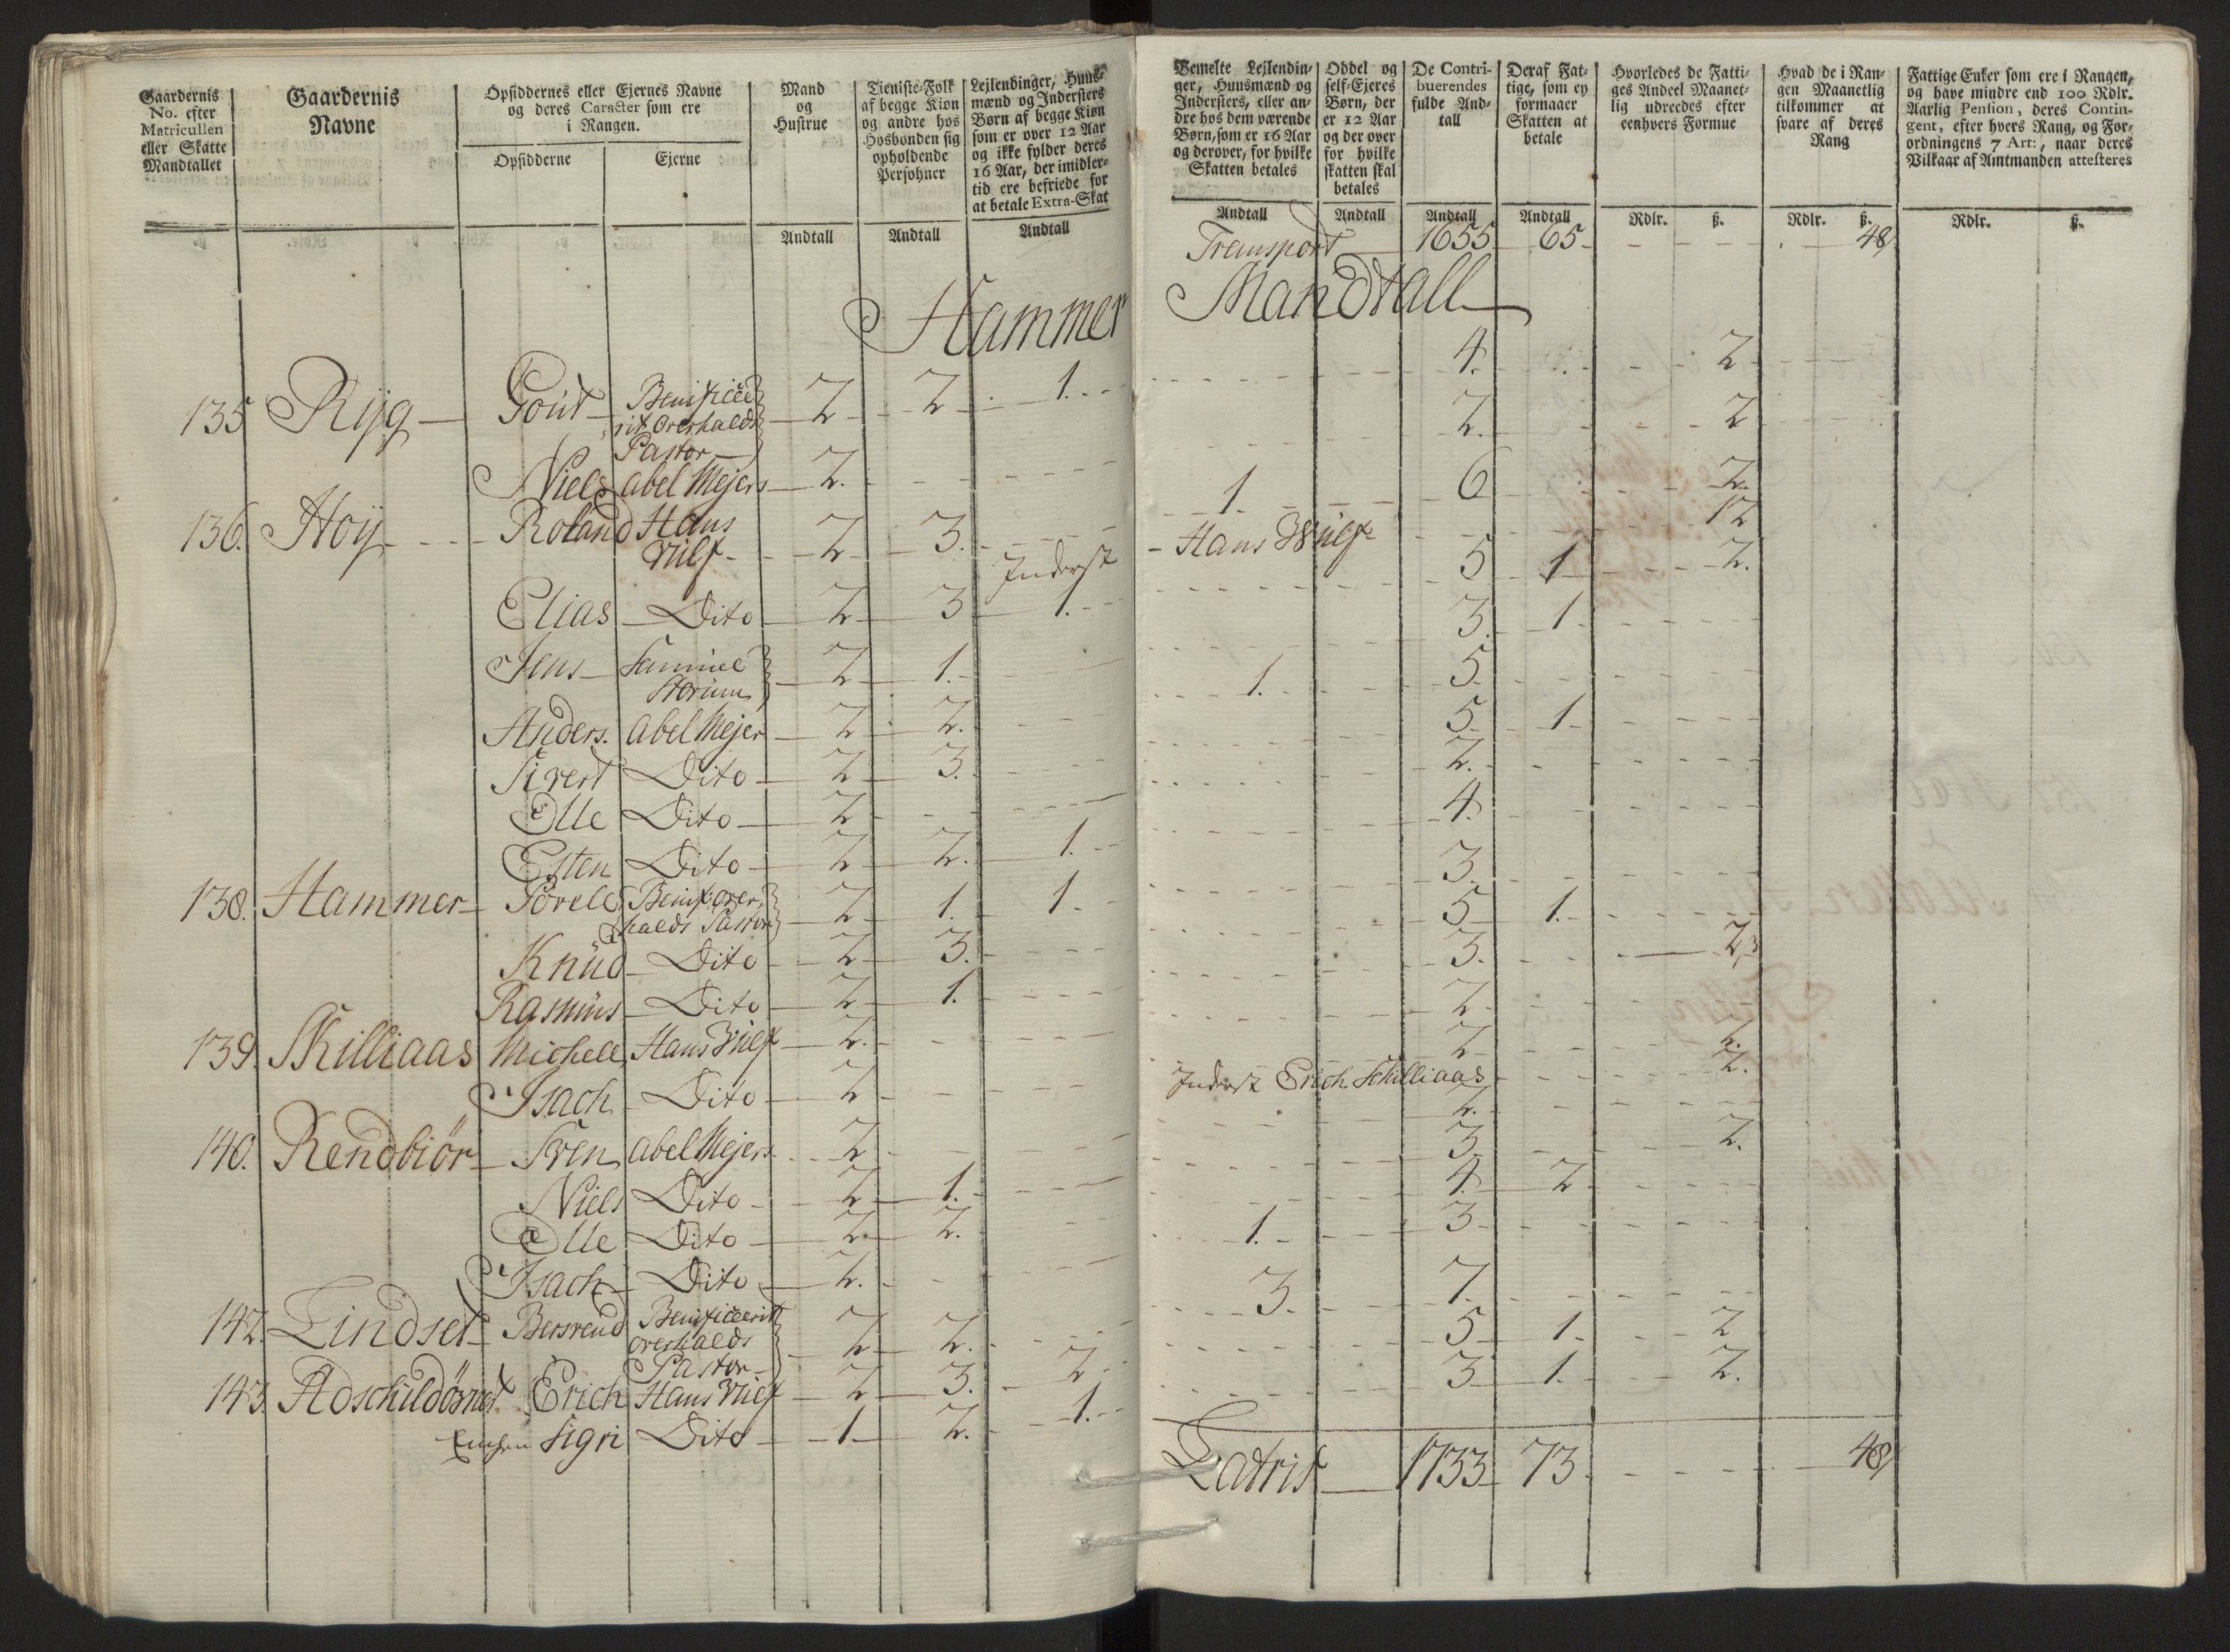 Gaardernis
No. efter
Matricullen
eller Skatte
Mandtallet
Gaardernis
Navne
Opsiddernes eller Ejernes Navne
og deres Caracter som ere
i Rangen.
Opsidderne
Ejerne
Mand
og
Hustrue
Tieniste-Folk
af begge Kiøn
og andre hos
Hosbonden sig
opholdende
Persohner
Lejlendinger, Huus-
mænd og Indersters
Børn af begge Kiøn
som er over 12 Aar
og ikke fylder deres
16 Aar, der imidler-
tid ere befriede for
at betale Extra-Skat
Andtall Andtall Andtall
Hammer
135 Rijg Goüt Benificē 2 2 1.
rit Overhalds
Pastor
Niels Abel Mejers 2.
136. Hoÿ Roland Hans 2 3.
Vulf
Inderst
Elias Dito 2 3 1.
Jens Samuel 2 1.
Storium
Anders. Abel Mejer 2 2.
Sivert Dito 2 3.
Olle Dito 2
Esten Dito 2 2. 1.
138. Hammer Povele Benif: over 2 1. 1
halds Pastor
Knüd Dito 2 3.
Rasmus Dito 2 1.
139. Skilliaas Michell Hans Vulf 2.
Isach Dito 2
140. Rendbiör Sven Abel Mejers 2
Niels Dito 2 1.
Olle Dito 2. 2.
Isach Dito 2.
142. Lindset Bersvend Benificeerit 2 2.
overhalds
Pastor
143. Adschildörnet Erich Hans Vulf 2 3. 2
Enchen Sigri Dito 1 2. 1.
Bemelte Lejlendin-
ger, Huusmænd og
Indersters, eller an-
dre hos dem værende
Børn, som er 16 Aar
og derover, for hvilke
Skatten betales
Oddel og
self-Ejeres
Børn, der
er 12 Aar
og der over
for hvilke
skatten skal
betales
De Contri-
buerendes
fulde And-
tall
Deraf Fat-
tige, som ey
formaaer
Skatten at
betale
Hvorledes de Fatti-
ges Andeel Maanet-
lig udredes efter
eenhvers Formue
Hvad de i Ran-
gen Maanetlig
tilkommer at
svare af deres
Rang
Fattige Enker som ere i Rangen,
og have mindre end 100 Rdlr.
Aarlig Pension, deres Contin-
gent, efter hvers Rang, og For-
ordningens 7 Art:, naar deres
Vilkaar af Amtmanden attesteres
Andtall Andtall Andtall Andtall Rdlr. ß. Rdlr. ß. Rdlr. ß.
Transport 1655 65 48
Mandtall
4. 2
2. 2
1. 6 2.
Hans Wulf 12
5 1 2.
3. 1.
1. 5.
5. 1
2.
4.
3.
5 1.
3. 2
2.
2 2.
Inderst Erich Schilliaas 2.
2.
3. 2.
4. 2
1. 3
3. 7.
5 1. 2
3 1. 2.
Latris 1733 73 48